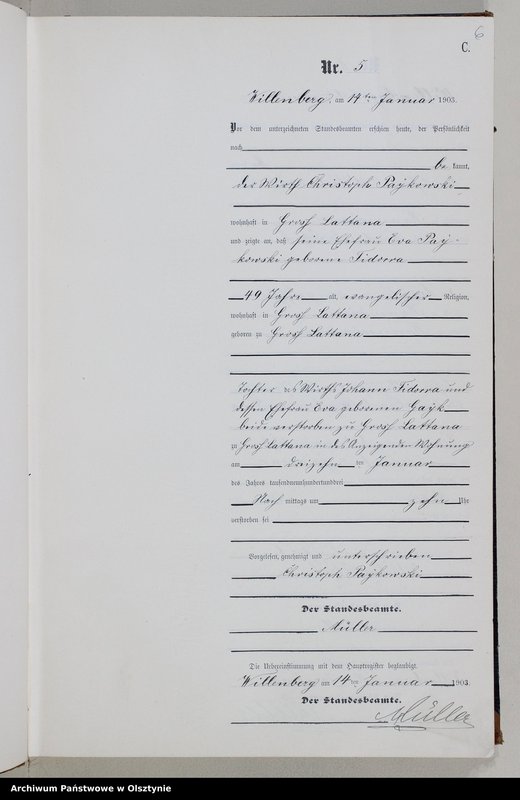 6
C.
Nr. 5
Willenberg, am 14ten Januar 1903.
Vor dem unterzeichneten Standesbeamten erschien heute, der Persönlichkeit
nach
be kannt,
der Wirth Christoph Paykowski
wohnhaft in Groß Lattana
und zeigte an, daß seine Ehefrau Eva Pay-
kowski geborene Fidorra
49 Jahre alt, evangelischer Religion,
wohnhaft in Groß Lattana
geboren zu Groß Lattana
Tochter des Wirths Johann Fidorra und
dessen Ehefrau Eva geborenen Gayk
beide verstorben zu Groß Lattana
zu Groß Lattana in des Anzeigenden Wohnung
am dreizehn ten Januar
des Jahres tausendneunhundertunddrei
Nach mittags um zehn Uhr
verstorben sei
Vorgelesen, genehmigt und unterschrieben
Christoph Paykowski
Der Standesbeamte.
Müller
Die Uebereinstimmung mit dem Hauptregister beglaubigt.
Willenberg am 14ten Januar 1903.
Der Standesbeamte.
Müller
Archiwum Państwowe w Olsztynie